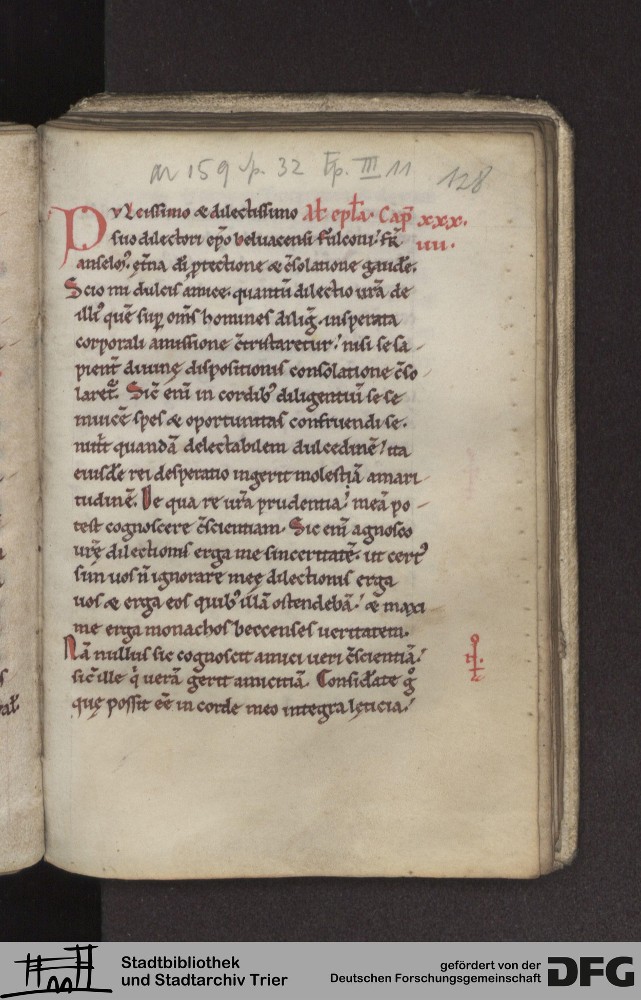 m 159 p. 32 Ep. III 11 128
Dulcissimo & dilectissimo Alt̄ epl̄a. Cap̄ xxx.
suo dilectori ep̄o beluacensi fulconi. fr̄ iiii.
anselm᷒. et̄na dī ꝓtectione & c̄solatione gaud̄e.
Scio mi dulcis amice. quantū dilectio ur̄a de
illi᷒ quē suꝑ om̄s homines diliḡ. insperata
corporali amissione c̄tristaretur. nisi se sa-
pient̄ diuinę dispositionis consolatione c̄so-
laret᷑. Sic̄ eni in cordib᷒ diligentiū sese
inuicē spes & oportunitas confruendi se.
mitt̄ quandā delectabilem dulcedinē. ita
eiusdē rei desperatio ingerit molestiā amari-
tudinē. De qua re ur̄a prudentia. meā po-
test cognoscere c̄scientiam. Sic eni agnosco
ur̄ę dilectionis erga me sinceritatē. ut cert᷒
sim uos n̄ ignorare meę dilectionis erga
uos & erga eos quib᷒ illā ostendebā. & maxi
me erga monachos beccenses ueritatem.
Nā nullus sic cognoscit amici ueri c̄scientiā.
sic̄ ille q̇ uerā gerit amicitiā. Considerate gͦ
quę possit eē in corde meo integra lęticia.
Stadtbibliothek
und Stadtarchiv Trier
gefördert von der
Deutschen Forschungsgemeinschaft
DFG